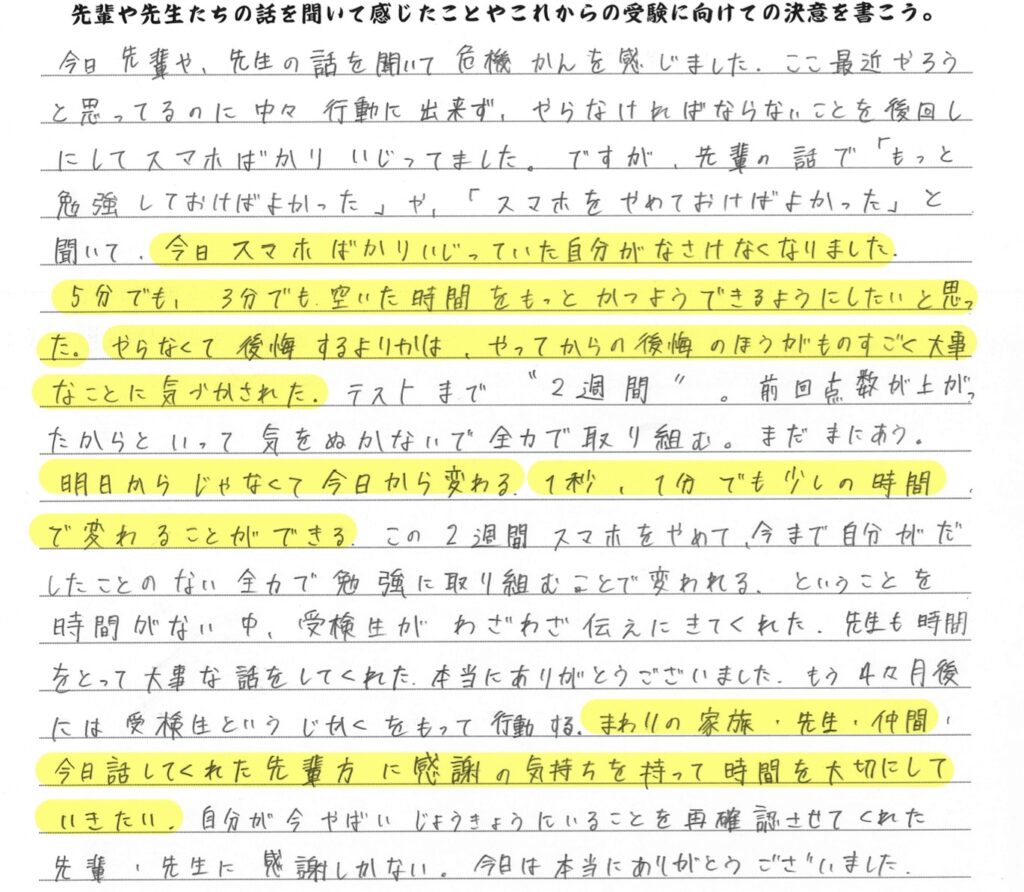 先輩や先生たちの話を聞いて感じたことやこれからの受験に向けての決意を書こう。
今日先輩や、先生の話を聞いて危機かんを感じました。ここ最近やろう
と思ってるのに中々行動に出来ず、やらなければならないことを後回し
にしてスマホばかりいじってました。ですが、先輩の話で「もっと
勉強しておけばよかった」や、「スマホをやめておけばよかった」と
聞いて、今日スマホばかりいじっていた自分がなさけなくなりました。
5分でも、3分でも空いた時間をもっとかつようできるようにしたいと思っ
た。やらなくて後悔するよりかは、やってからの後悔のほうがものすごく大事
なことに気づかされた。テストまで“2週間”。前回点数が上がっ
たからといって気をぬかないで全力で取り組む。まだまにあう。
明日からじゃなくて今日から変わる。1秒、1分でも少しの時間
で変わることができる。この2週間スマホをやめて、今まで自分がだ
したことのない全力で勉強に取り組むことで変われる。ということを
時間がない中、受検生がわざわざ伝えにきてくれた。先生も時間
をとって大事な話をしてくれた。本当にありがとうございました。もう4ヶ月後
には受検生というじかくをもって行動する。まわりの家族・先生・仲間・
今日話してくれた先輩方に感謝の気持ちを持って時間を大切にして
いきたい。自分が今やばいじょうきょうにいることを再確認させてくれた
先輩・先生に感謝しかない。今日は本当にありがとうございました。